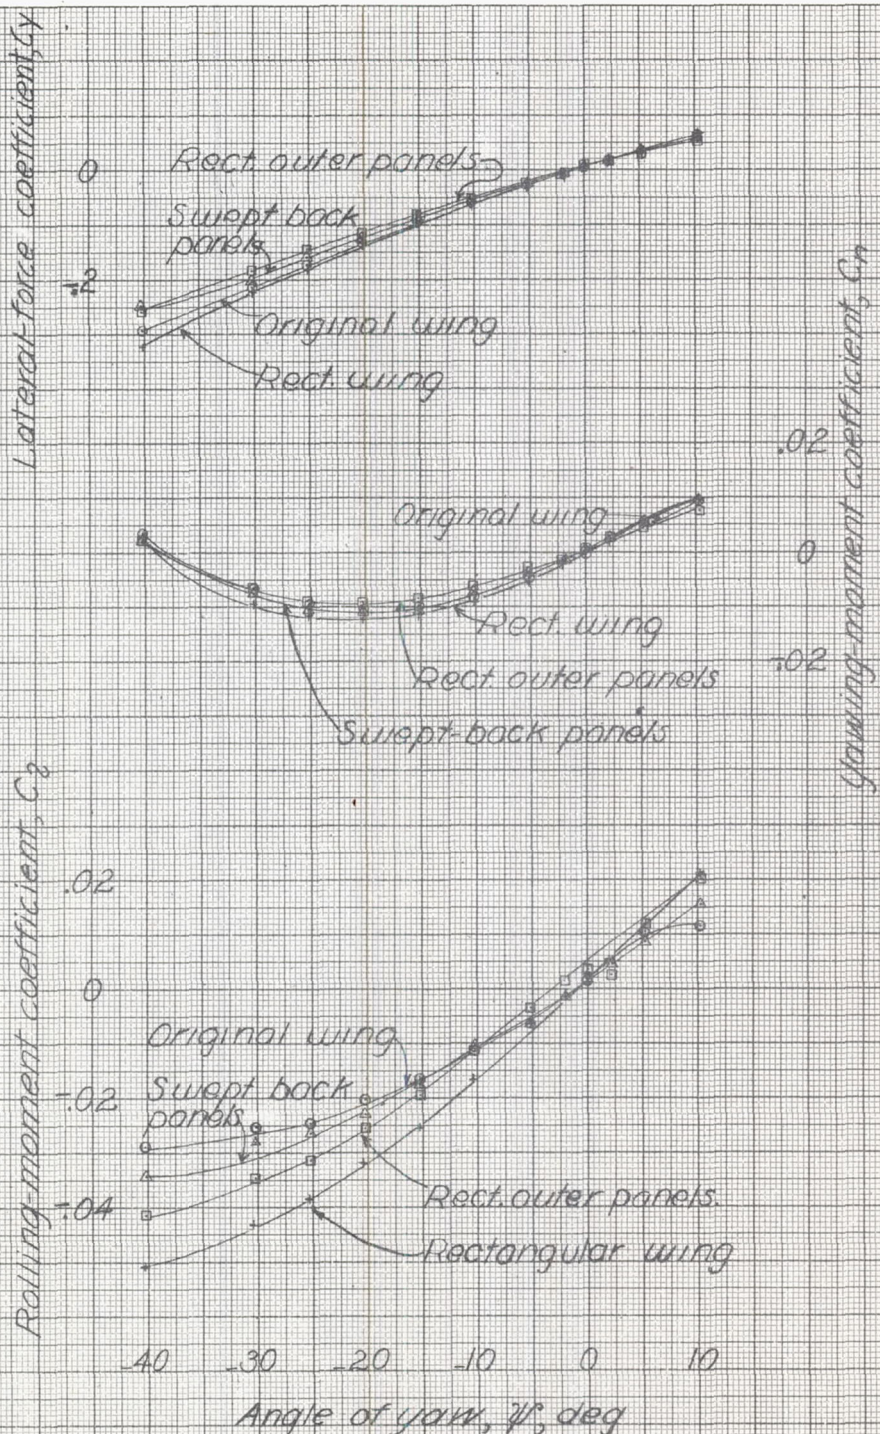 Lateral-force coefficient, Cy
0
-.2
Rect. outer panels
Swept back
panels
Original wing
Rect. wing
Yawing-moment coefficient, Cn
.02
0
-.02
Original wing
Rect. wing
Rect. outer panels
Swept-back panels
Rolling-moment coefficient, Cl
.02
0
-.02
-.04
Original wing
Swept back
panels
Rect. outer panels.
Rectangular wing
-40 -30 -20 -10 0 10
Angle of yaw, ψ, deg